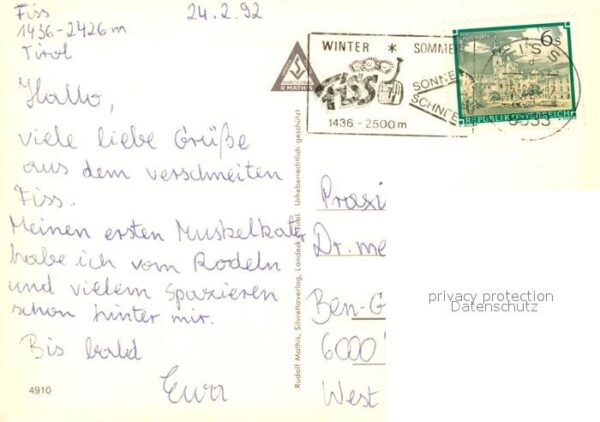 Fiss
1436-2426 m
Tirol
24.2.92
Hallo,
viele liebe Grüße
aus dem verschneiten
Fiss.
Meinen ersten Muskelkater
habe ich vom Rodeln
und vielem Spazieren
schon hinter mir.
Bis bald
4910
R. MATHIS
Rudolf Mathis, Silvrettaverlag, Landeck, Tirol. Urheberrechtlich geschützt!
WINTER * SOMME
FISS
SONNE
SCHNEE
1436 - 2500 m
6S
REPUBLIK ÖSTERREICH
FISS
6533
Praxi
Dr. me
Ben-G
6000
West
privacy protection
Datenschutz